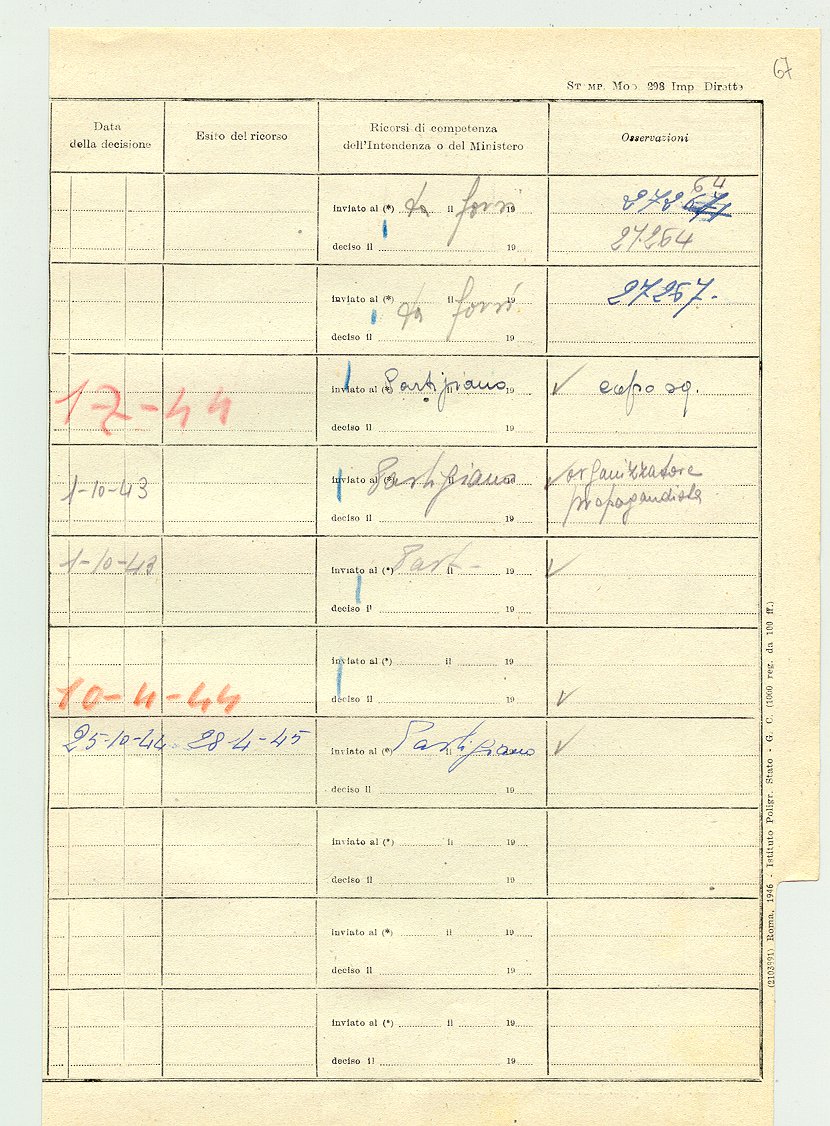 67
STAMP. MOD. 298 Imp. Dirette
Data
della decisione
Esito del ricorso
Ricorsi di competenza
dell'Intendenza o del Ministero
Osservazioni
inviato al (*) da il forsi 19
64
27267
deciso il 19
27264
inviato al (*) da il forsi 19
27267.
deciso il 19
1-7-44
inviato al (*) Partigiano il 19
✓ capo sq.
deciso il 19
1-10-43
inviato al (*) Partigiano il 19
✓ organizzatore
propagandista
deciso il 19
1-10-43
inviato al (*) Part- il 19
✓
deciso il 19
inviato al (*) il 19
10-4-44
deciso il 19
✓
25-10-44 28-4-45
inviato al (*) Partigiano il
✓
deciso il 19
inviato al (*) il 19
deciso il 19
inviato al (*) il 19
deciso il 19
inviato al (*) il 19
deciso il 19
(2103891) Roma, 1946 - Istituto Poligr. Stato - G. C. (1000 reg. da 100 ff.)